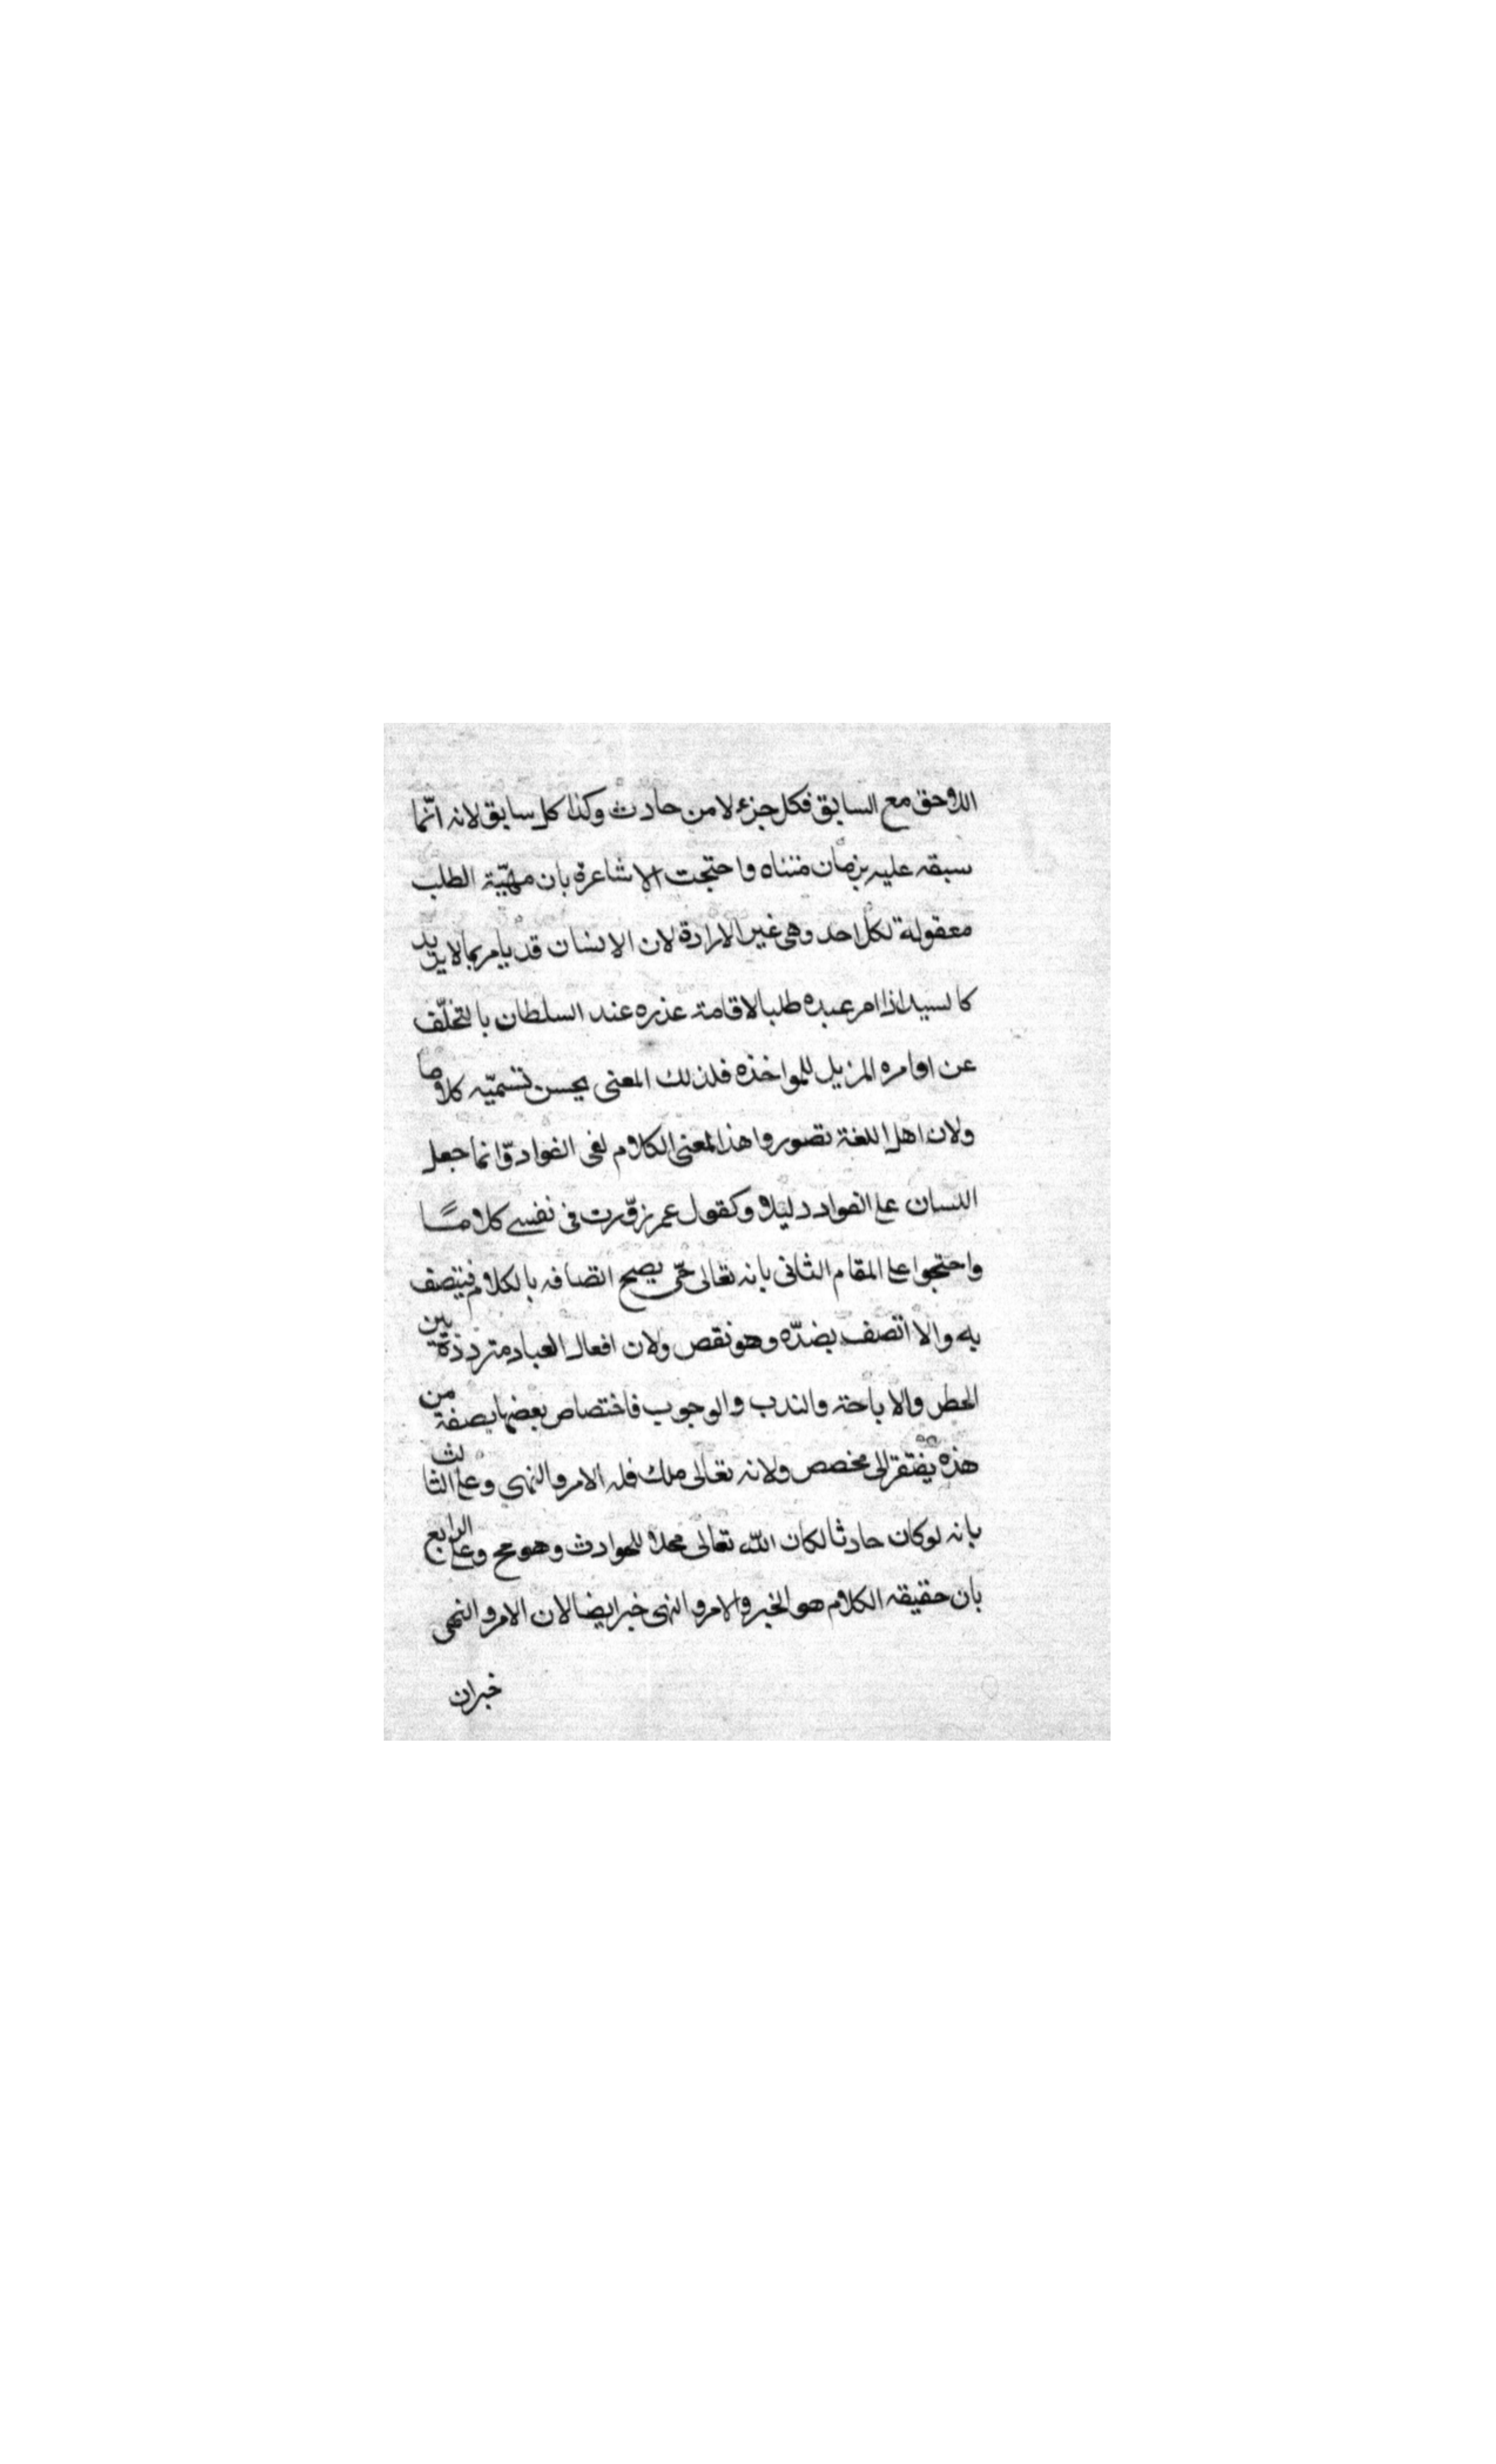 اللاوحق مع السابق فكل جزء لا من حادث وكذا كل سابق لانه انّما
سبقه عليه بزمان متناه واحتجت الاشاعرة بان مهيّة الطلب
معقولة لكل احد وهى غير الارادة لان الانسان قد يامر بما لا يريد
كالسيد اذا امر عبده طلبا لاقامة عذره عند السلطان بالتخلّف
عن اوامره المزيل للمواخذه فلذلك المعنى يحسن تسميّه كلاما
ولان اهل اللغة تصوروا هذا المعنى الكلام لفى الفواد وّانما جعل
اللسان على الفواد دليلا وكقول عمر زوّرت فى نفسى كلامًا
واحتجوا على المقام الثانى بانه تعالى حىّ يصح اتصافه بالكلام فيتصف
به والا اتصف بضدّه وهو نقص ولان افعال العباد مترددة بين
الحظر والاباحة والندب والوجوب فاختصاص بعضها بصفة من
هذه يفتقر الى مخصص ولانه تعالى ملك فله الامر والنهى وعلى الثالث
بانه لو كان حادثا لكان الله تعالى محلا للحوادث وهو مح وعلى الرابع
بان حقيقه الكلام هو الخبر والامر والنهى خبر ايضا لان الامر والنهى
خبران